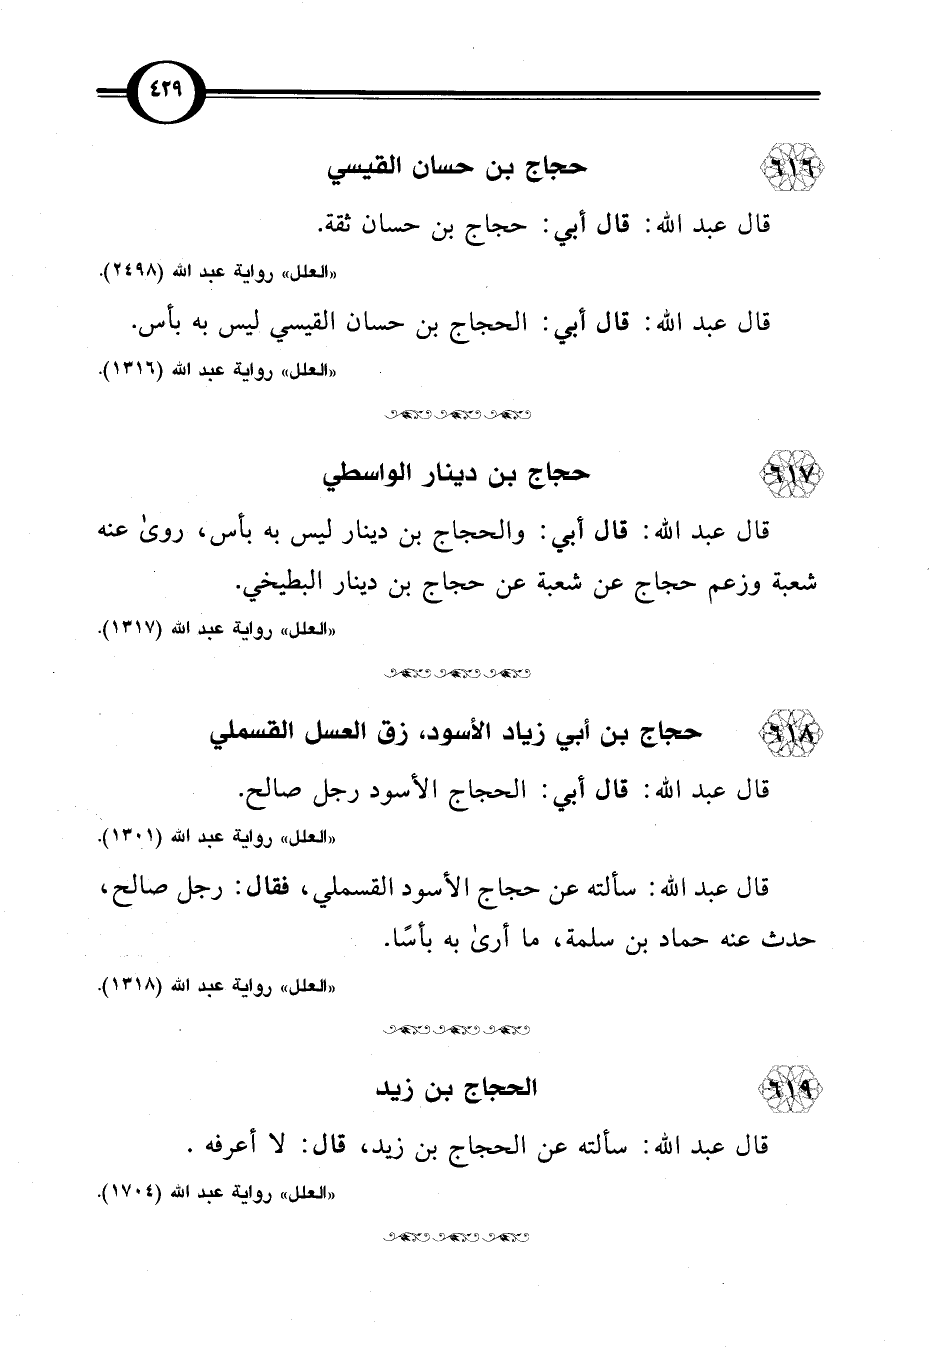 ٤٢٩
٦١٦ حجاج بن حسان القيسي
قال عبد الله: قال أبي: حجاج بن حسان ثقة.
«العلل» رواية عبد الله (٢٤٩٨).
قال عبد الله: قال أبي: الحجاج بن حسان القيسي ليس به بأس.
«العلل» رواية عبد الله (١٣١٦).
٦١٧ حجاج بن دينار الواسطي
قال عبد الله: قال أبي: والحجاج بن دينار ليس به بأس، روىٰ عنه
شعبة وزعم حجاج عن شعبة عن حجاج بن دينار البطيخي.
«العلل» رواية عبد الله (١٣١٧).
٦١٨ حجاج بن أبي زياد الأسود، زق العسل القسملي
قال عبد الله: قال أبي: الحجاج الأسود رجل صالح.
«العلل» رواية عبد الله (١٣٠١).
قال عبد الله: سألته عن حجاج الأسود القسملي، فقال: رجل صالح،
حدث عنه حماد بن سلمة، ما أرىٰ به بأسًا.
«العلل» رواية عبد الله (١٣١٨).
٦١٩ الحجاج بن زيد
قال عبد الله: سألته عن الحجاج بن زيد، قال: لا أعرفه .
«العلل» رواية عبد الله (١٧٠٤).